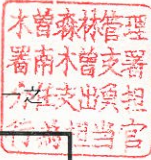 木曽森林管理
署南木曽支署
分任支出負担
行為担当官
之